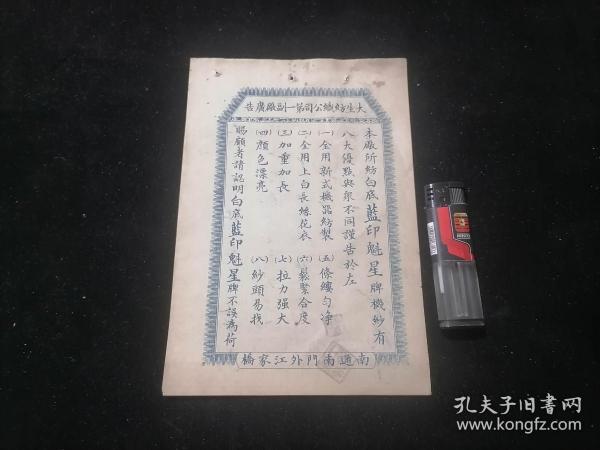 大生紡織公司第一副厰廣告
本廠所紡白底藍印魁星牌機紗有
八大優點與眾不同謹告於左
(一)全用新式機器紡製
(五)條縷勻净
(二)全用上白長絲花衣
(六)鬆緊合度
(三)加重加長
(七)拉力强大
(四)顏色漂亮
(八)紗頭易找
賜顧者請認明白底藍印魁星牌不誤為荷
南通南門外江家橋
孔夫子旧書网
www.kongfz.com